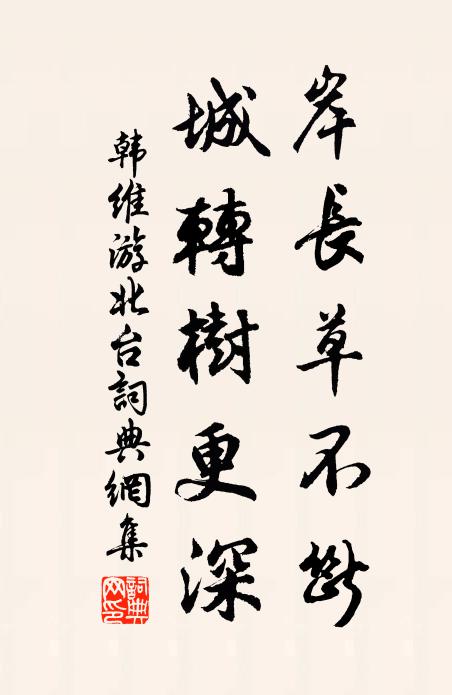 岸長草不斷
城轉樹更深
韩维游北台詞典網集
詞典网印